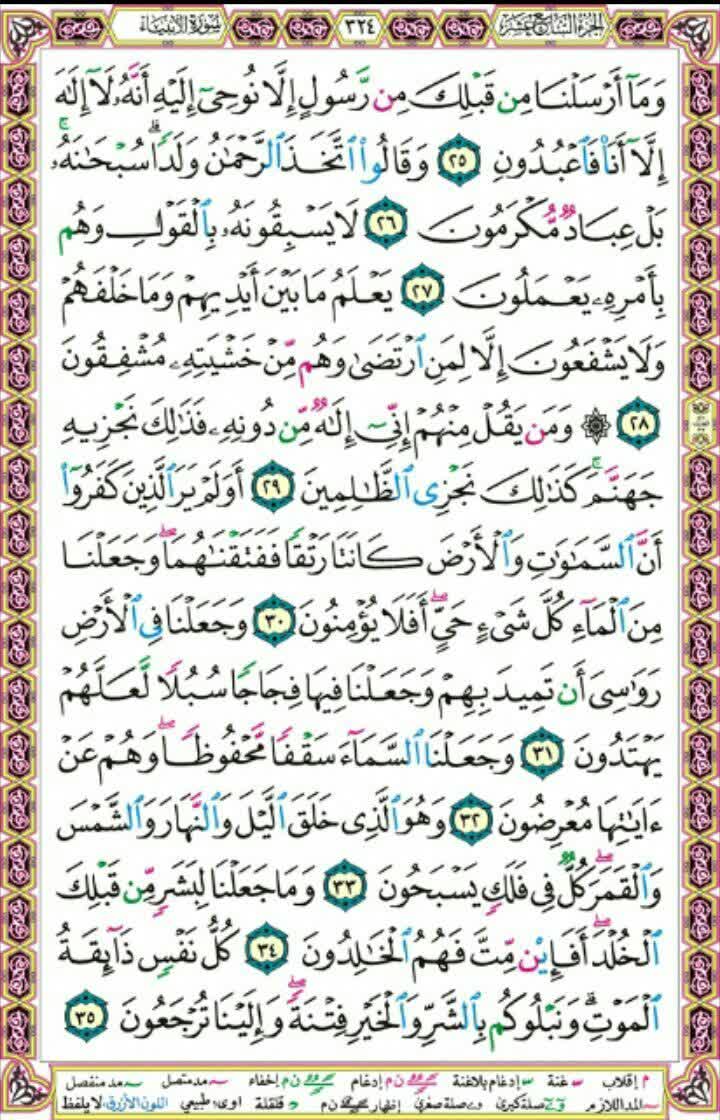 الجزء السابع عشر ٣٢٤ سورة الأنبياء
وَمَآ أَرۡسَلۡنَا مِن قَبۡلِكَ مِن رَّسُولٍ إِلَّا نُوحِيٓ إِلَيۡهِ أَنَّهُۥ لَآ إِلَٰهَ
إِلَّآ أَنَا۠ فَٱعۡبُدُونِ ٢٥ وَقَالُواْ ٱتَّخَذَ ٱلرَّحۡمَٰنُ وَلَدٗاۗ سُبۡحَٰنَهُۥۚ
بَلۡ عِبَادٞ مُّكۡرَمُونَ ٢٦ لَا يَسۡبِقُونَهُۥ بِٱلۡقَوۡلِ وَهُم
بِأَمۡرِهِۦ يَعۡمَلُونَ ٢٧ يَعۡلَمُ مَا بَيۡنَ أَيۡدِيهِمۡ وَمَا خَلۡفَهُمۡ
وَلَا يَشۡفَعُونَ إِلَّا لِمَنِ ٱرۡتَضَىٰ وَهُم مِّنۡ خَشۡيَتِهِۦ مُشۡفِقُونَ
٢٨ ۞ وَمَن يَقُلۡ مِنۡهُمۡ إِنِّيٓ إِلَٰهٞ مِّن دُونِهِۦ فَذَٰلِكَ نَجۡزِيهِ
جَهَنَّمَۚ كَذَٰلِكَ نَجۡزِي ٱلظَّٰلِمِينَ ٢٩ أَوَلَمۡ يَرَ ٱلَّذِينَ كَفَرُوٓاْ
أَنَّ ٱلسَّمَٰوَٰتِ وَٱلۡأَرۡضَ كَانَتَا رَتۡقٗا فَفَتَقۡنَٰهُمَاۖ وَجَعَلۡنَا
مِنَ ٱلۡمَآءِ كُلَّ شَيۡءٍ حَيٍّۖ أَفَلَا يُؤۡمِنُونَ ٣٠ وَجَعَلۡنَا فِي ٱلۡأَرۡضِ
رَوَٰسِيَ أَن تَمِيدَ بِهِمۡ وَجَعَلۡنَا فِيهَا فِجَاجٗا سُبُلٗا لَّعَلَّهُمۡ
يَهۡتَدُونَ ٣١ وَجَعَلۡنَا ٱلسَّمَآءَ سَقۡفٗا مَّحۡفُوظٗاۖ وَهُمۡ عَنۡ
ءَايَٰتِهَا مُعۡرِضُونَ ٣٢ وَهُوَ ٱلَّذِي خَلَقَ ٱلَّيۡلَ وَٱلنَّهَارَ وَٱلشَّمۡسَ
وَٱلۡقَمَرَۖ كُلّٞ فِي فَلَكٖ يَسۡبَحُونَ ٣٣ وَمَا جَعَلۡنَا لِبَشَرٖ مِّن قَبۡلِكَ
ٱلۡخُلۡدَۖ أَفَإِيْن مِّتَّ فَهُمُ ٱلۡخَٰلِدُونَ ٣٤ كُلُّ نَفۡسٖ ذَآئِقَةُ
ٱلۡمَوۡتِۗ وَنَبۡلُوكُم بِٱلشَّرِّ وَٱلۡخَيۡرِ فِتۡنَةٗۖ وَإِلَيۡنَا تُرۡجَعُونَ ٣٥
م إقلاب غنة إدغام بلاغنة ن م إدغام ن م إخفاء مد متصل مد منفصل
المد اللازم صلة كبرى صلة صغرى إظهار ن م قلقلة اوى: طبيعي اللون الأزرق: لا يلفظ